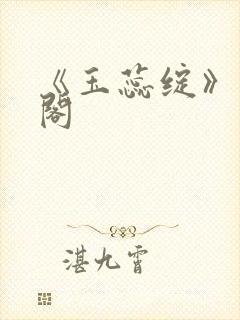 《玉蕊绽》
阁
湛九霄